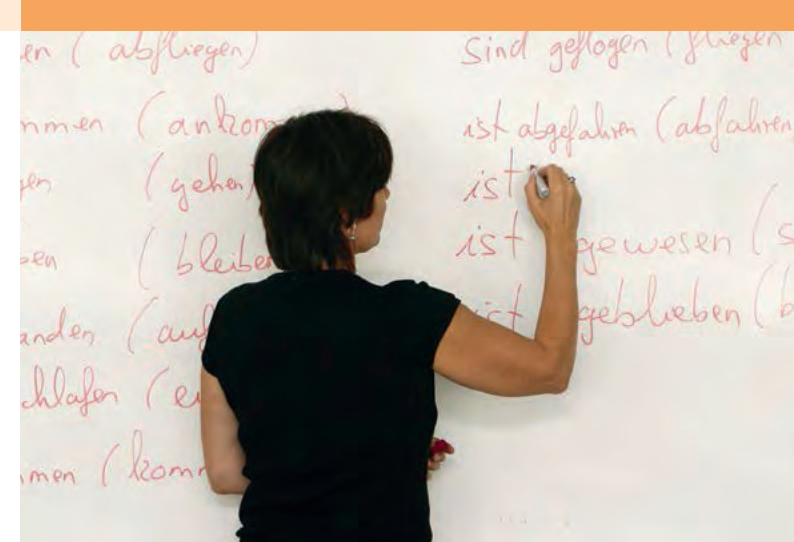 en (abfliegen)
mmen (ankom
gen (gehen)
ben (bleiben
anden (auf
chlafen (ei
mmen (komm
sind geflogen (fliegen
ist abgefahren (abfahren
ist
ist gewesen (s
ist geblieben (b